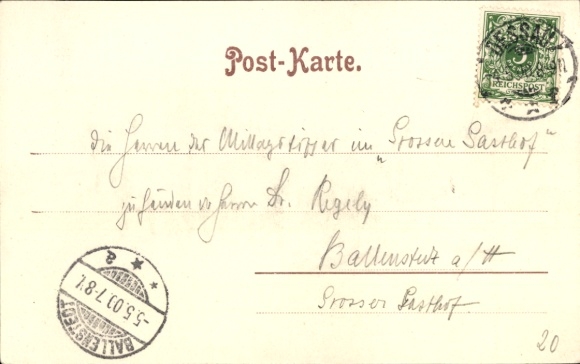 Post-Karte.
DESSAU
5
REICHSPOST
die Herren der Mittagstisches im "Grossen Gasthof"
zu Händen v Herrn Dr. Regely
Ballenstedt a/H
Grosser Gasthof.
BALLENSTEDT
5.5.00.7-8V.
a
20